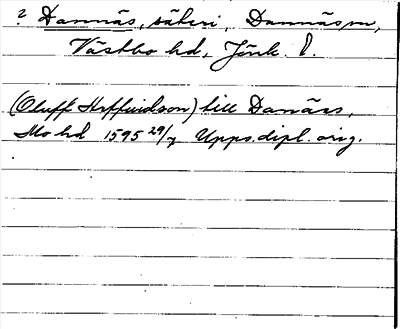 ? Dannäs, säteri, Dannäs sn,
Västbo hd, Jönk. l.
(Oluff Hoffuidson) till Danäss,
Mo hd 1595 29/7 Upps. dipl. orig.